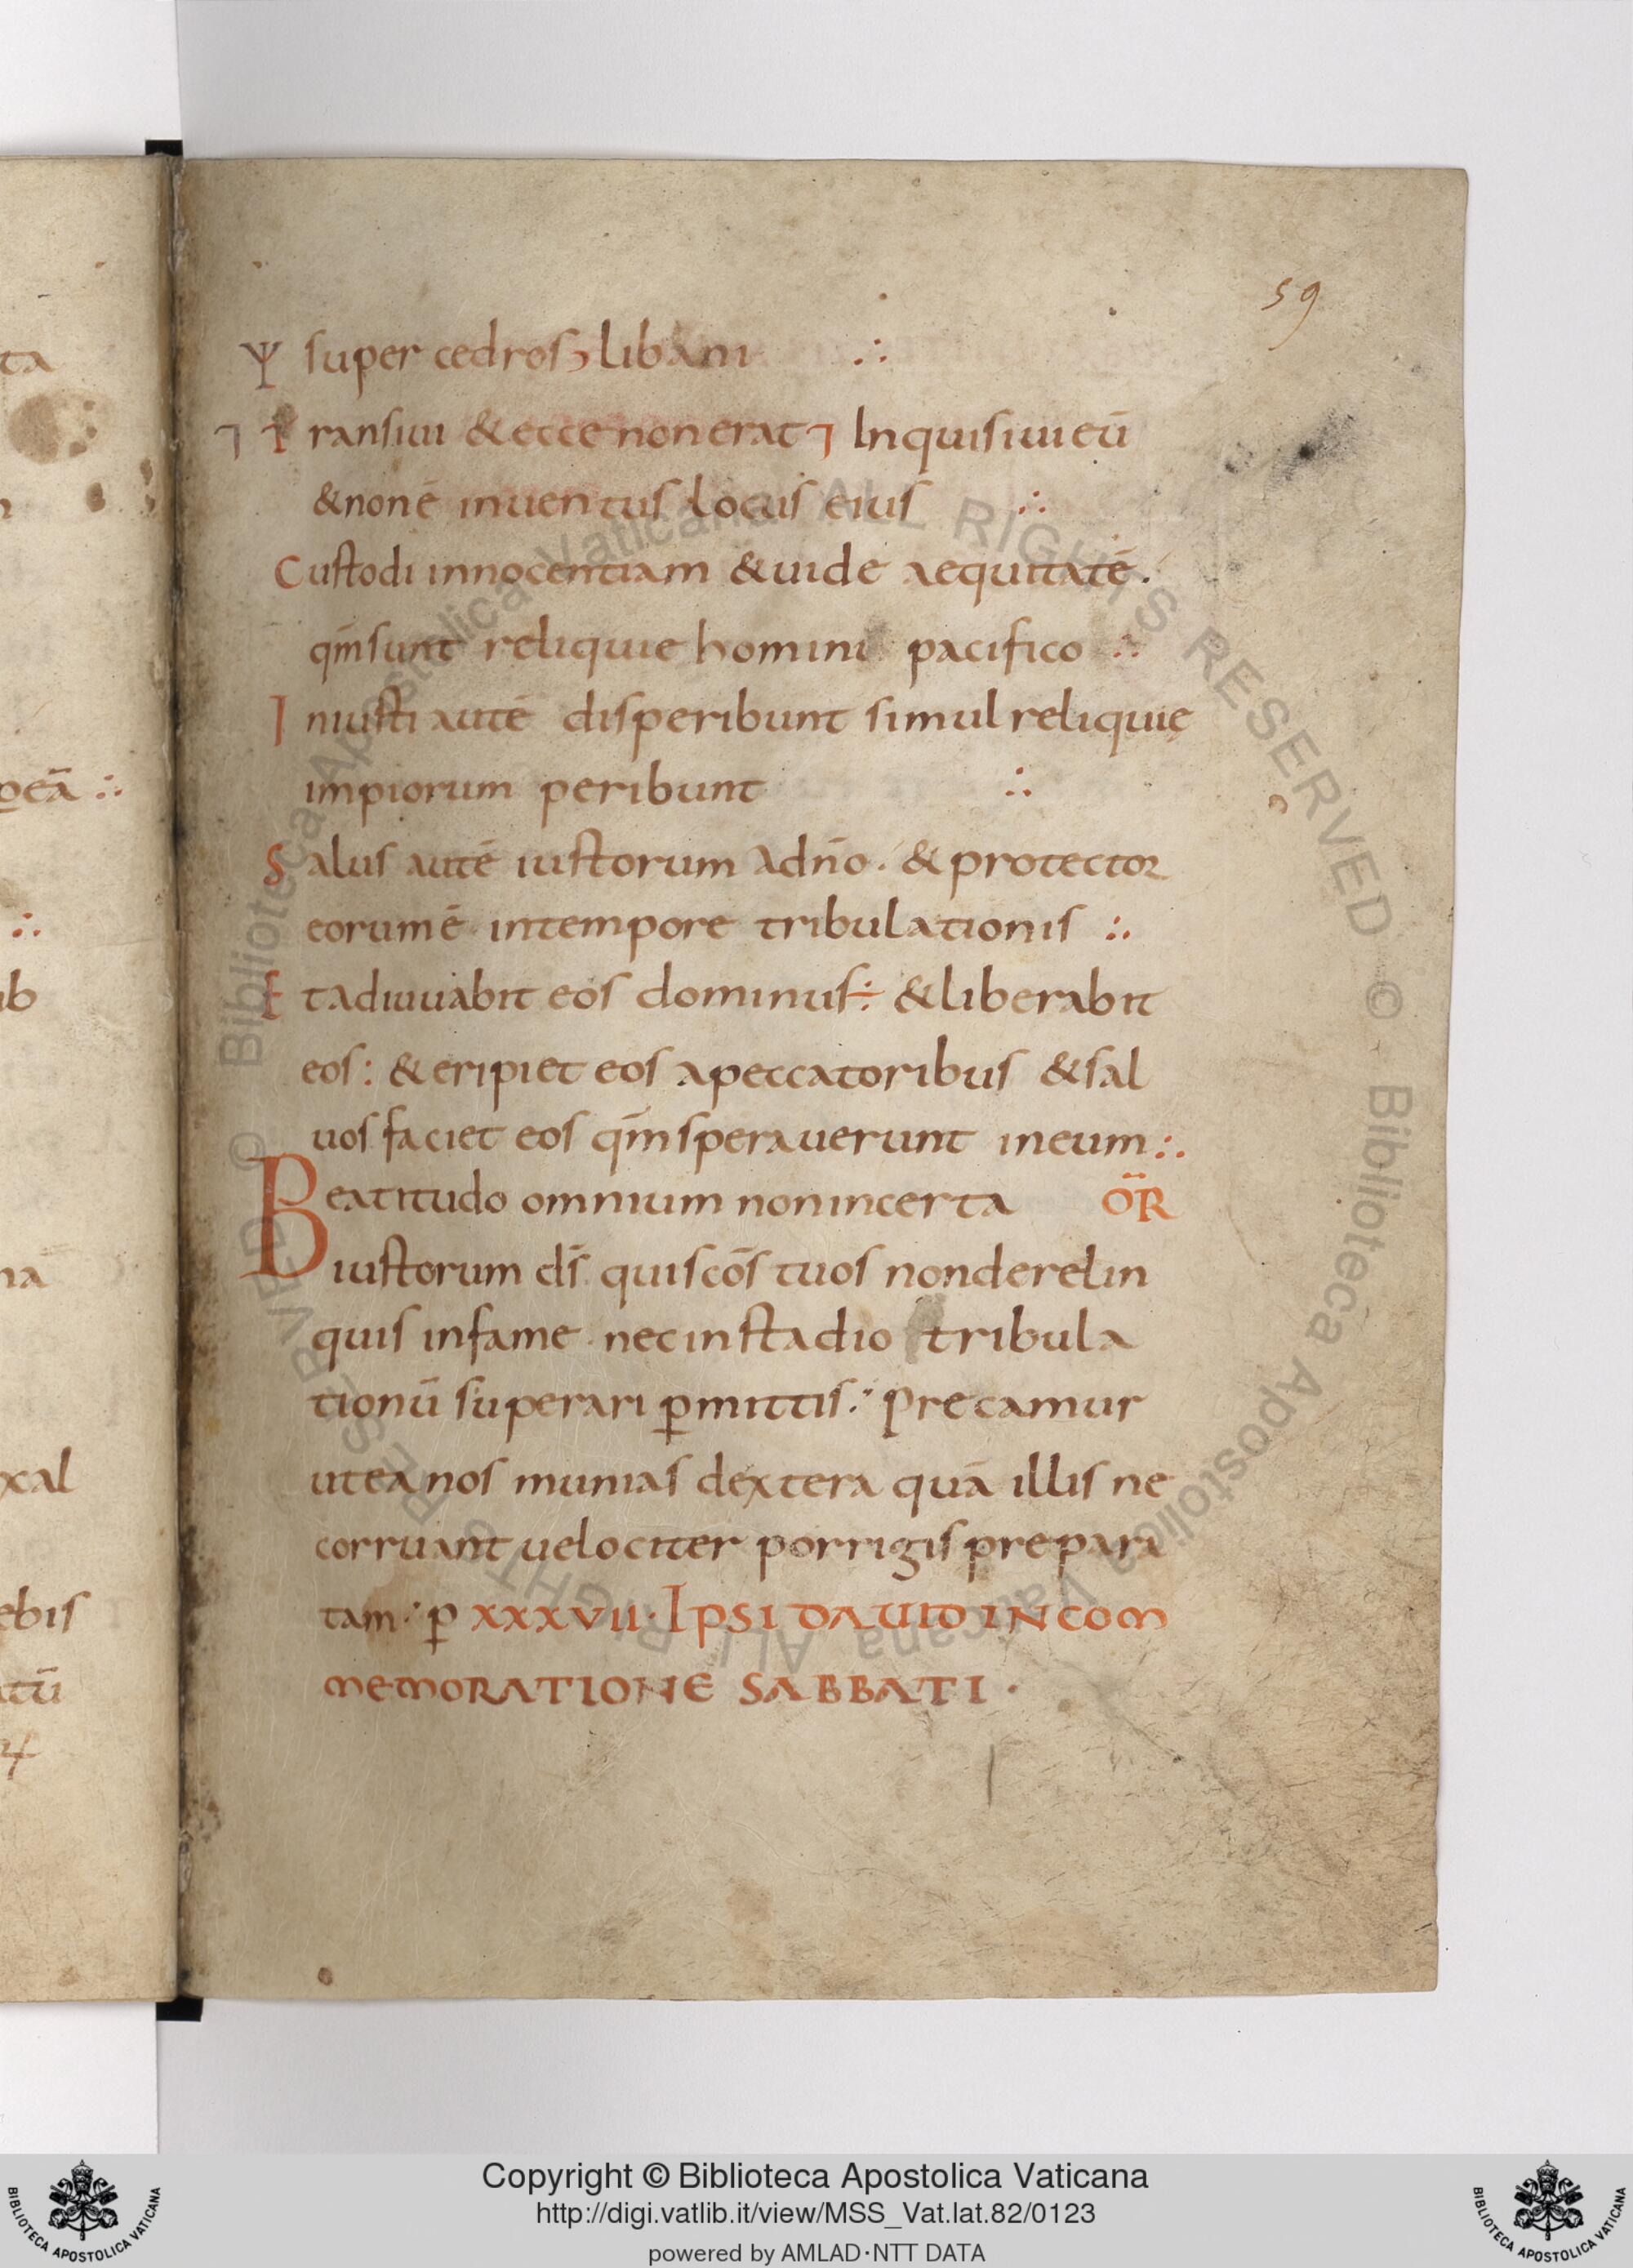 59
Ψ super cedros libani ∴
Transiui & ecce non erat Inquisiui eū
& non ē inuentus locus eius ∴
Custodi innocentiam & uide aequitatē.
qm̄ sunt reliquie homini pacifico ∴
Iniusti autē disperibunt simul reliquię
impiorum peribunt ∴
Salus autē iustorum a dn̄o. & protector
eorum ē in tempore tribulationis ∴
Et adiuuabit eos dominus: & liberabit
eos: & eripiet eos a peccatoribus & sal
uos faciet eos qm̄ sperauerunt in eum ∴
Beatitudo omnium non incerta ŌR
iustorum ds̄ qui scōs tuos non derelin
quis in fame nec in stadio tribula
tionū superari ꝑmittis: Precamur
ut ea nos munias dextera quā illis ne
corruant uelociter porrigis prepara
tam: ꝑ XXXVII. IPSI DAUID IN COM
MEMORATIONE SABBATI.
Copyright © Biblioteca Apostolica Vaticana
http://digi.vatlib.it/view/MSS_Vat.lat.82/0123
powered by AMLAD·NTT DATA
BIBLIOTECA APOSTOLICA VATICANA
BIBLIOTECA APOSTOLICA VATICANA
© Biblioteca Apostolica Vaticana ALL RIGHTS RESERVED © Biblioteca Apostolica Vaticana ALL RIGHTS RESERVED